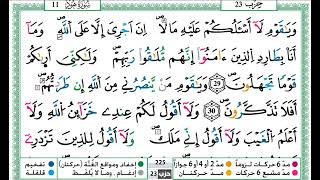 حِزْب 23 سُورَةُ هُود 11
وَيَٰقَوْمِ لَآ أَسْـَٔلُكُمْ عَلَيْهِ مَالًا ۖ إِنْ أَجْرِىَ إِلَّا عَلَى ٱللَّهِ ۚ وَمَآ
أَنَا۠ بِطَارِدِ ٱلَّذِينَ ءَامَنُوٓا۟ ۚ إِنَّهُم مُّلَٰقُوا۟ رَبِّهِمْ وَلَٰكِنِّىٓ أَرَىٰكُمْ
قَوْمًا تَجْهَلُونَ 29 وَيَٰقَوْمِ مَن يَنصُرُنِى مِنَ ٱللَّهِ إِن طَرَدتُّهُمْ ۚ
أَفَلَا تَذَكَّرُونَ 30 وَلَآ أَقُولُ لَكُمْ عِندِى خَزَآئِنُ ٱللَّهِ وَلَآ
أَعْلَمُ ٱلْغَيْبَ وَلَآ أَقُولُ إِنِّى مَلَكٌ وَلَآ أَقُولُ لِلَّذِينَ تَزْدَرِىٓ
مدّ 6 حركات لزوماً مدّ 2 أو 4 أو 6 جوازاً 225 إخفاء ومواقع الغُنَّة (حركتان) تفخيم
مدّ مشبع 6 حركات مدّ حركتان حزب 23 إدغام ، وما لا يُلفَظ قلقلة